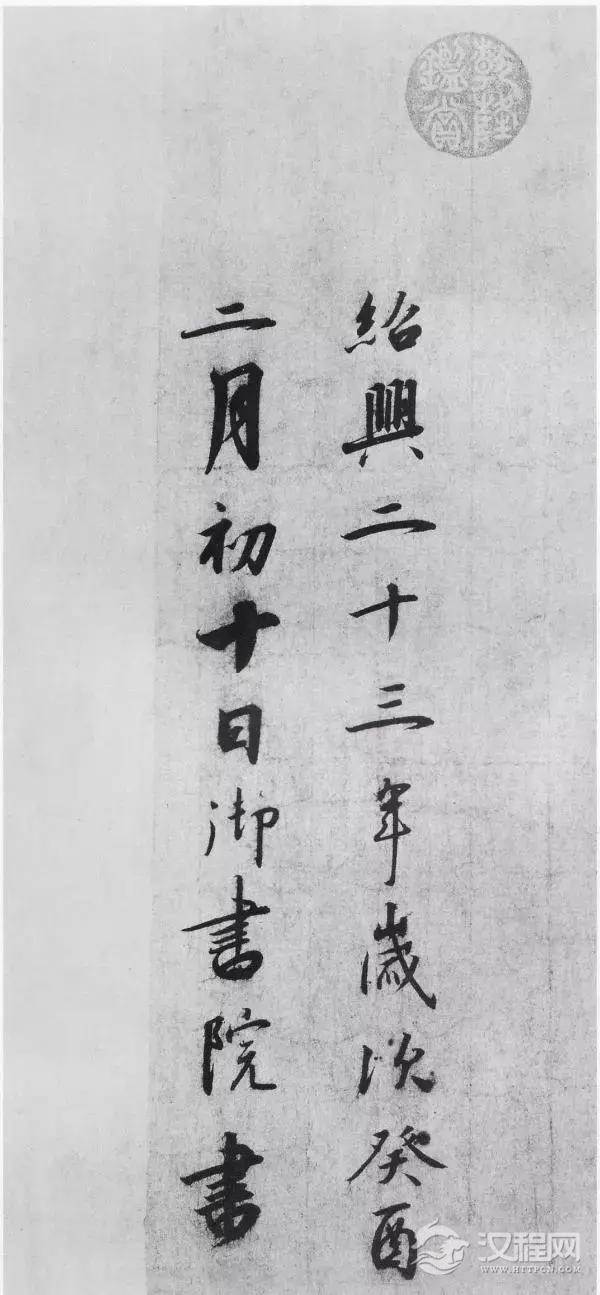 乾隆鑑賞
紹興二十三年歲次癸酉
二月初十日御書院書
汉程网
WWW.HTTPCN.COM